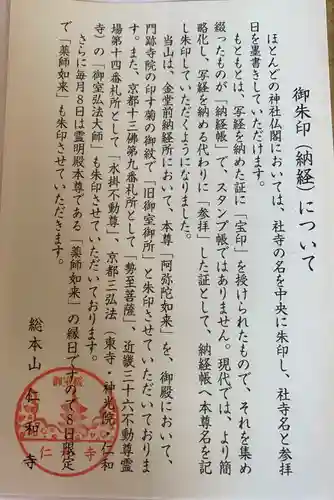 御朱印（納経）について
ほとんどの神社仏閣においては、社寺の名を中央に朱印し、社寺名と参拝
日を墨書きしていただけます。
もともとは、写経を納めた証に「宝印」を授けられたもので、それを集め
綴ったものが「納経帳」で、スタンプ帳ではありません。現代では、より簡
略化し、写経を納める代わりに「参拝」した証として、納経帳へ本尊名を記
し朱印していただくようになりました。
当山は、金堂前納経所において、本尊「阿弥陀如来」を、御殿において、
門跡寺院の印す菊の御紋で「旧御室御所」と朱印させていただいておりま
す。また、京都十三佛第九番札所として「勢至菩薩」、近畿三十六不動尊霊
場第十四番札所として「水掛不動尊」、京都三弘法（東寺・神光院・仁和
寺）の「御室弘法大師」も朱印させていただいております。
さらに毎月８日は霊明殿本尊である「薬師如来」の縁日ですので８日限定
で「薬師如来」も朱印させていただきます。
総本山 仁和寺
仁 和 寺